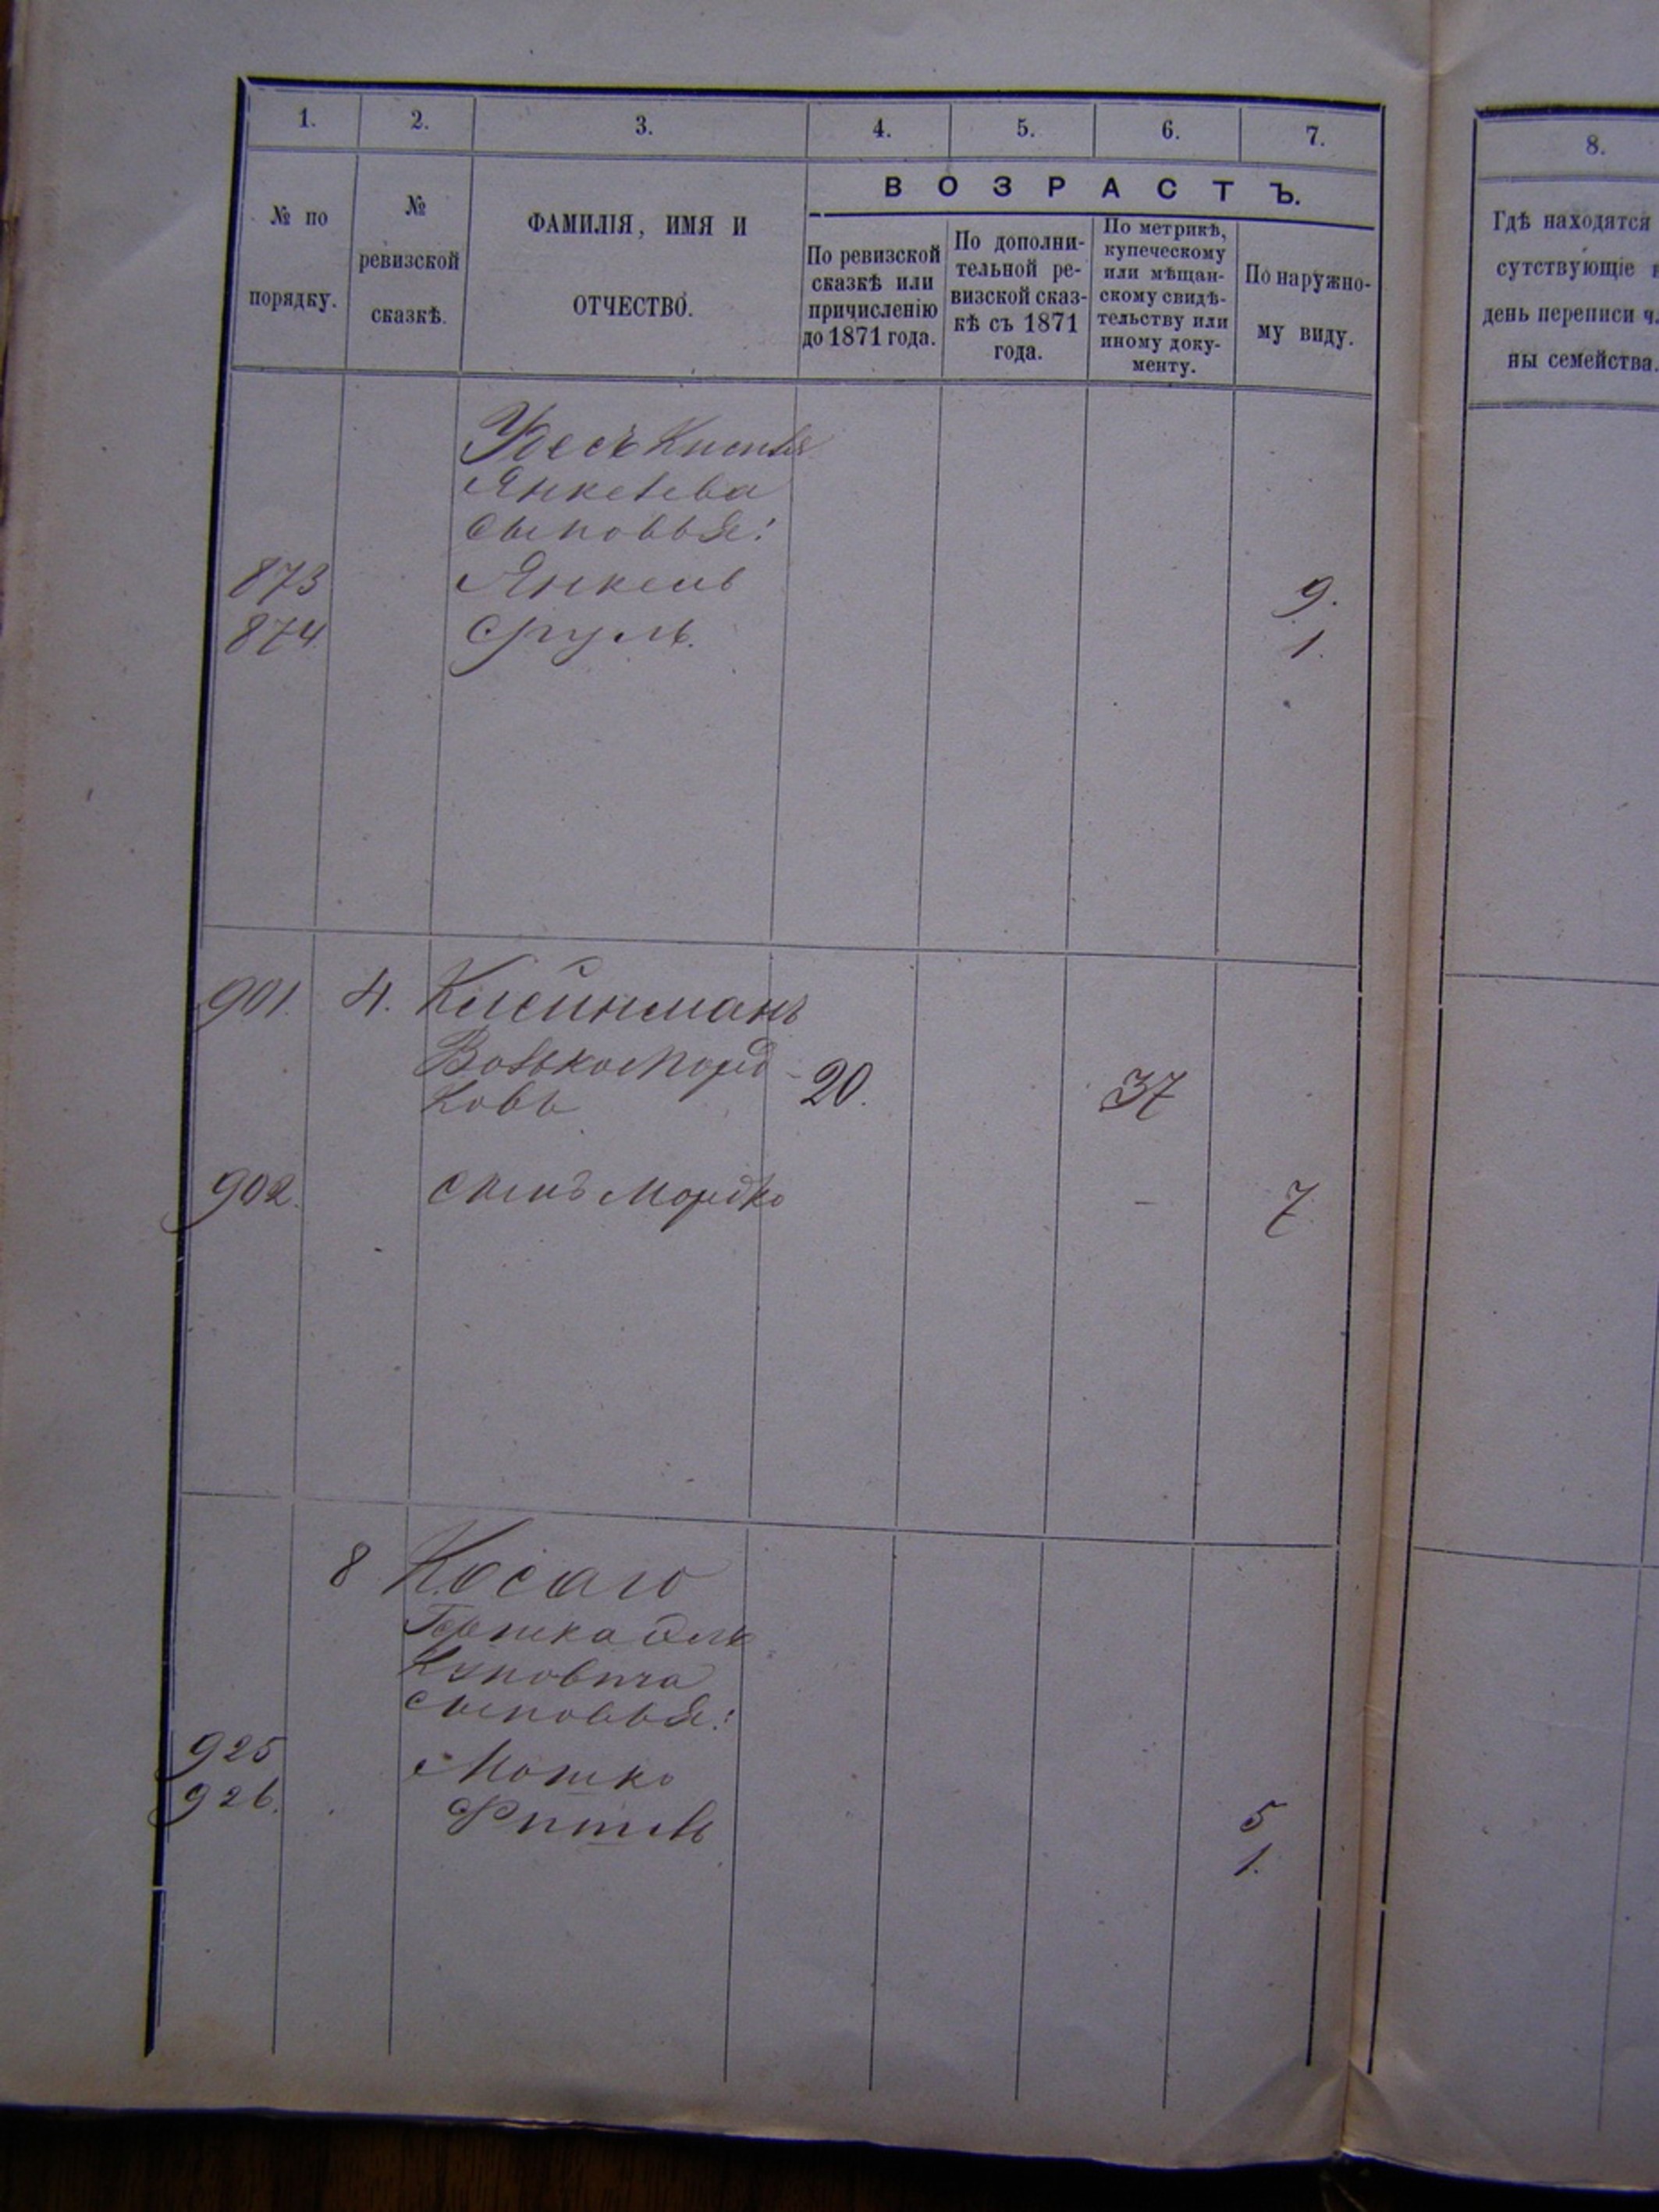 1. 2. 3. 4. 5. 6. 7.
ВОЗРАСТЪ.
№ по порядку.
№ ревизской сказкѣ.
ФАМИЛІЯ, ИМЯ И
ОТЧЕСТВО.
По ревизской
сказкѣ или
причисленію
до 1871 года.
По дополни-
тельной ре-
визской сказ-
кѣ съ 1871
года.
По метрикѣ,
купеческому
или мѣщан-
скому свидѣ-
тельству или
иному доку-
менту.
По наружно-
му виду.
Янкелева
сыновья:
873 Янкель 9.
874 Сруль. 1.
901. 4. Клейнманъ
Волько Морд
ковъ 20. 37
902. сынъ Мордко — 7.
8 Косаго
сыновья:
925 Мошко 5
926. 1.
8.
Гдѣ находятся
сутствующіе
день переписи
ны семейства.